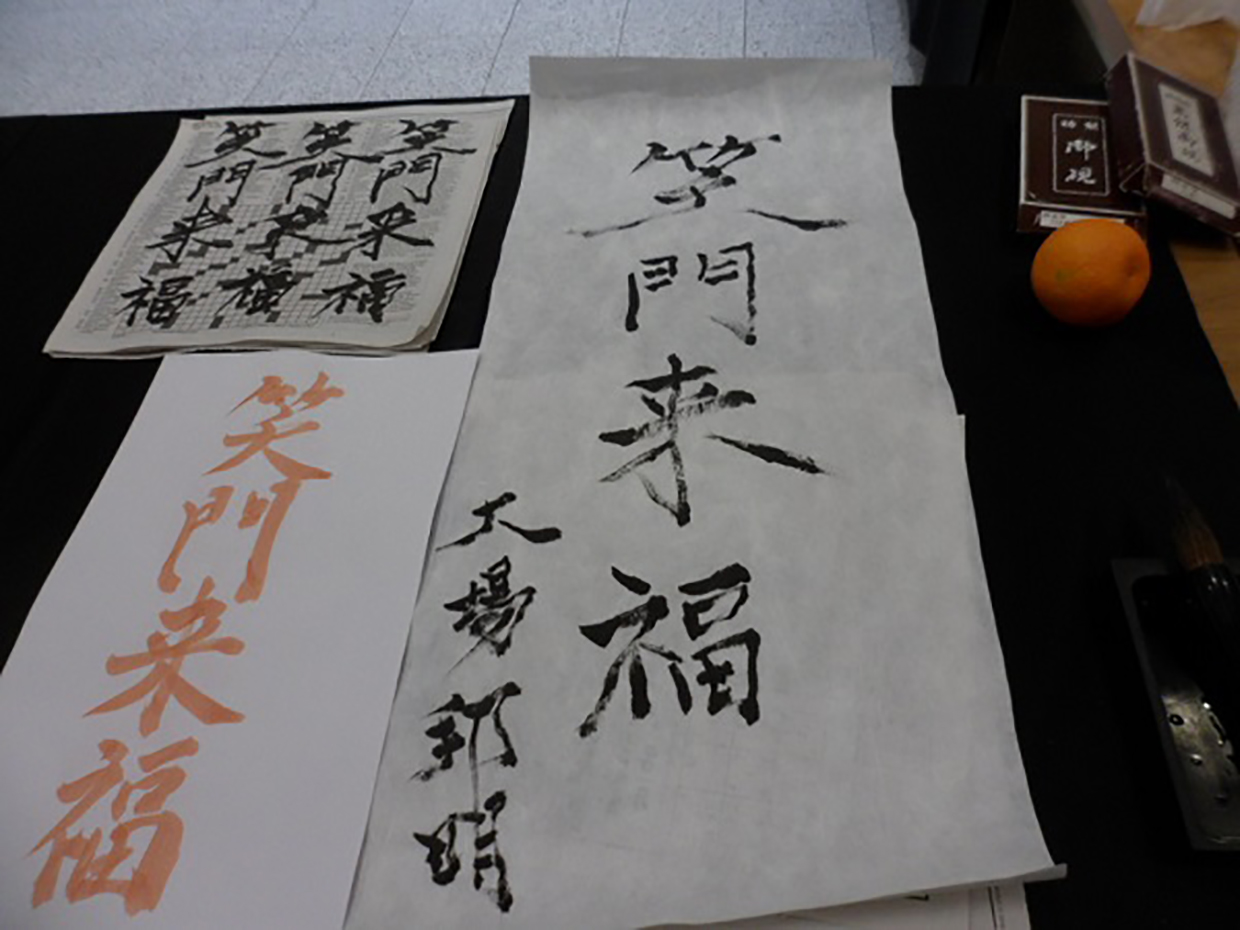 笑門来福
大場邦明
笑門来福
笑門来福
笑門来福
笑門来福
御硯